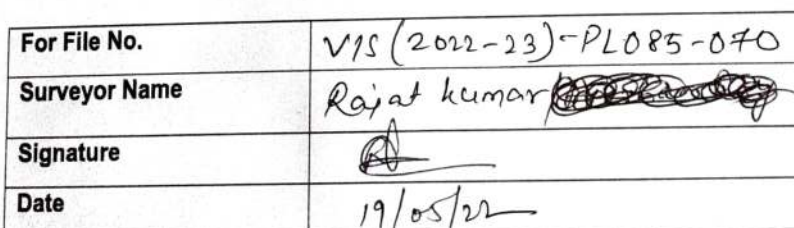 For File No. VIS (2022-23)-PL085-070
Surveyor Name Rajat kumar
Signature
Date 19/05/22